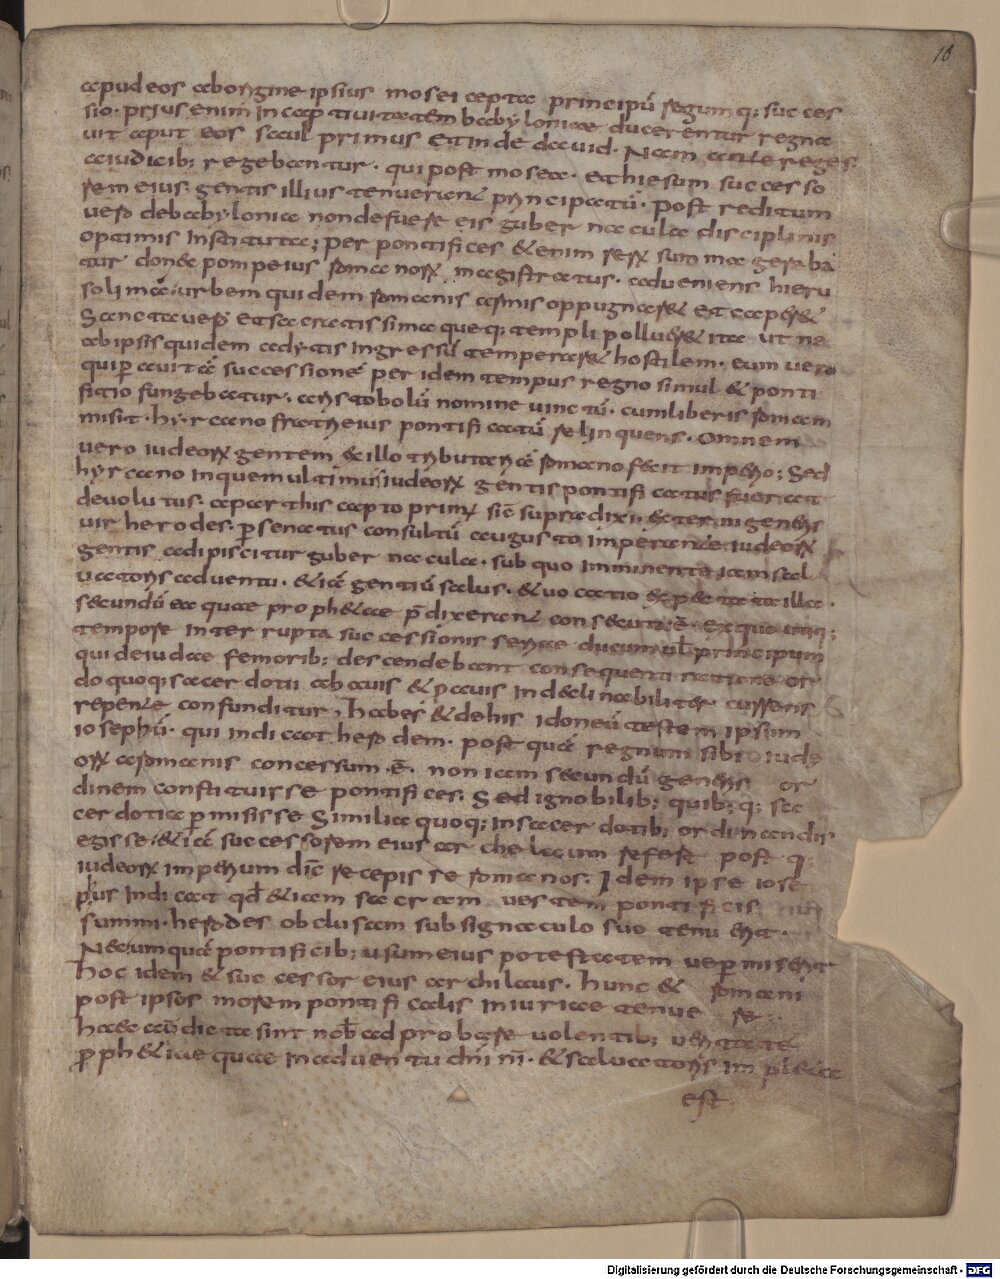 18
apud eos aborigine ipsius mosei cepta principũ regumq; succes
sio. prius enim in captiuitatem babylonia ducerentur regna
uit aput eos saul primus et inde dauid. Nam ante reges
a iudicib; regebantur. qui post mosea. et hiesum succesfo
rem eius gentis illius tenuerunt principatũ. post reditum
uero de babylonia non defuere eis gubernacula disciplinis
optimis instituta; per pontifices & enim rerũ summa geraba
tur donec pompeius romanorũ magistratus. adueniens hieru
solimã. urbem quidem romanis armis oppugnar& et caper&
Sancta uero et sacratissima queq; templi pollu&& ita ut ne
ab ipsis quidem adytis ingressũ temperar& hostilem. eum uero
qui p̱ auitã successionẽ per idem tempus regno simul & ponti
ficio fungebatur. aristobolũ nomine uinctũ. cum liberis romam
misit. hyrcano fratri eius pontificatũ relinquens. omnem
uero iudeorũ gentem & illo tributariã romano fecit imperio; Sed
hyrcano in quem ultimus iudeorũ gentis pontificatus fuerat
deuolutus. a parthis capto primũ sic̃ supra dixi. &ter. in geneñs
uir herodes. p̱ senatus consultũ augusto imperante iudeorũ
gentis adipiscitur gubernacula. sub quo imminente iam sal
uatoris aduentu. & iã gentiũ salus. & uocatio expectata illa.
secundũ ea quae proph&ae p̃dixerant consecuta ẽ. Ex quo utiq;
tempore interrupta successionis series ducum ul̃ principum
qui de iudae femorib; descendebant consequenti ratione or
do quoq; sacerdotii ab auis & p̱auis indeclinabiliter currens
repente confunditur, habes & de his idoneũ testem ipsum
iosephũ. qui indicat herodem. post quã regnum sibi iude
orũ a romanis concessum.ẽ. non iam secundũ generis or
dinem constituisse pontifices. Sed ignobilib; quib;q; sa
cerdotia p̱misisse Similia quoq; in sacerdotib; ordinandis
egisse. & iã successorem eius archelaum refert post q;
iudeorũ imperium dic̃ recepisse romanos. Idem ipse iose
phus indicat qđ & iam sacram uestem pontificis
summi. herodes obclusam sub signaculo suo tenuerit.
Nec umquã pontificib; usum eius potestatem ue p̱miserit
hoc idem & successor eius archilaus. hunc & romani
post ipsos morem pontificalis iniuriae tenue re.
haec aũ dicta sint nob̃ ad probare uolentib; ueritate
p̱ph&iae quae in aduentu dñi nĩ. & saluatoris impleta
est.
Digitalisierung gefördert durch die Deutsche Forschungsgemeinschaft - DFG